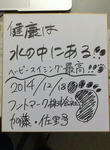 健康は
水の中にある!!
ベービースイミング最高!!
2014/12/18
フットマーク株式会社
加藤・佐里